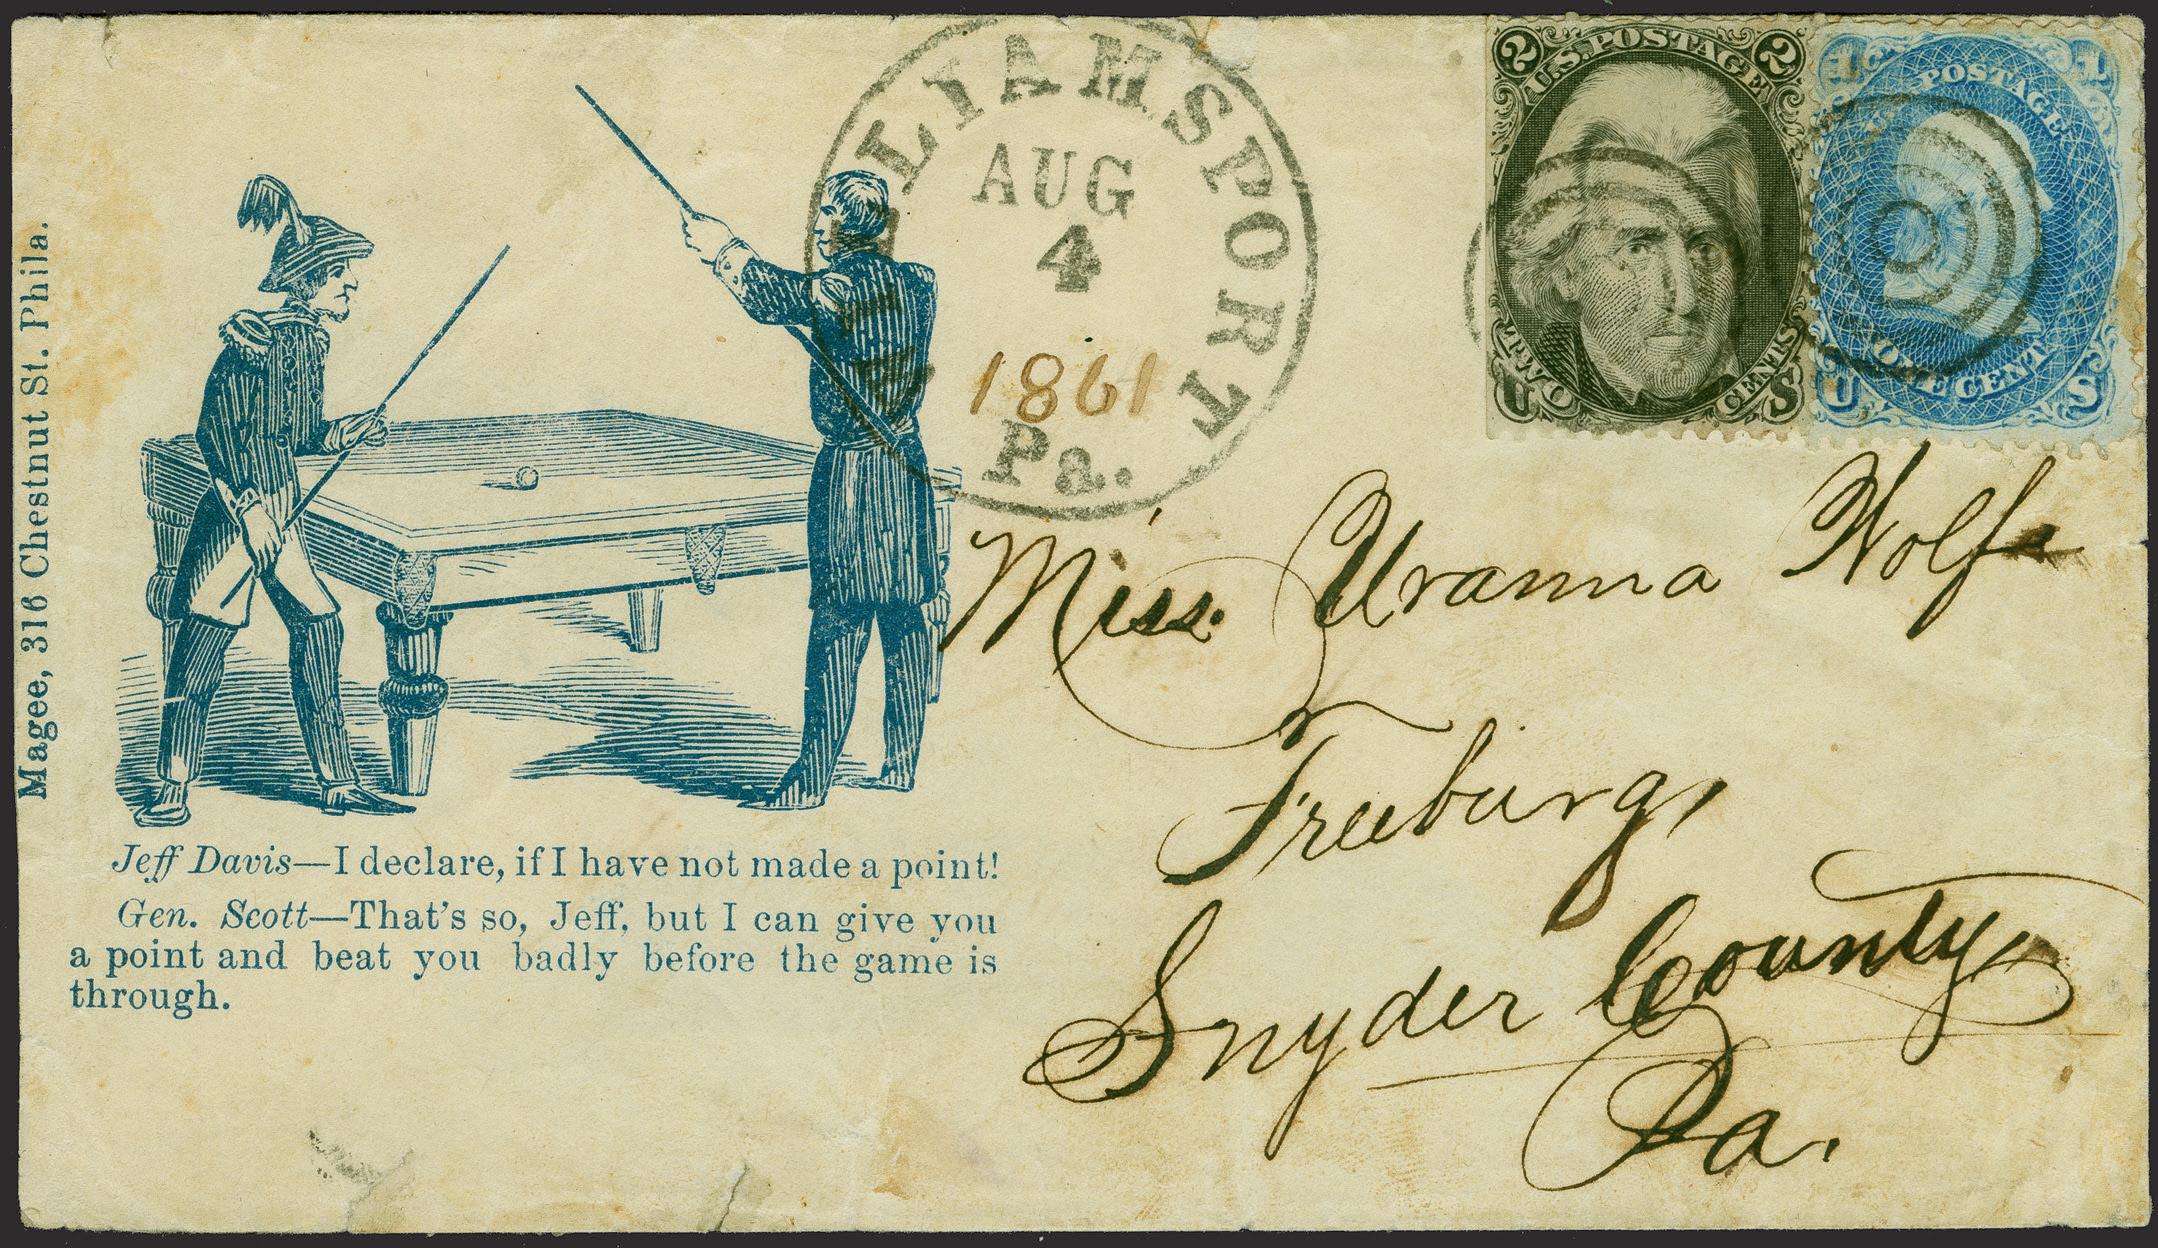 Magee, 316 Chestnut St. Phila.
LLIAMSPORT
AUG
4
1861
Pa.
2 U.S. POSTAGE 2
U TWO CENTS S
1 U.S. POSTAGE 1
U ONE CENT S
Miss. Uranna Wolfe
Freeburg,
Snyder County,
Pa.
Jeff Davis—I declare, if I have not made a point!
Gen. Scott—That's so, Jeff, but I can give you
a point and beat you badly before the game is
through.